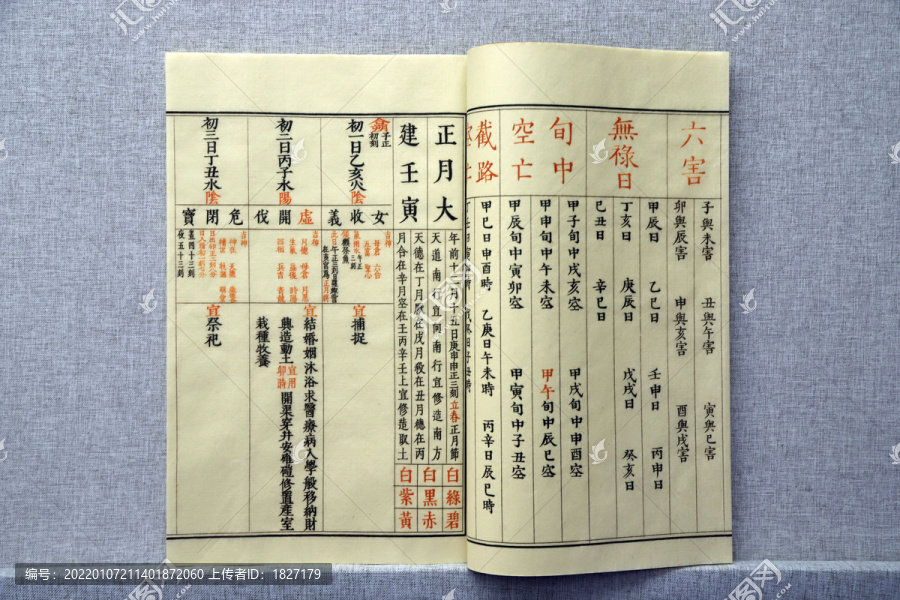 六害
子與未害 丑與午害 寅與巳害
卯與辰害 申與亥害 酉與戌害
無祿日
甲辰日 乙巳日 壬申日 丙申日
丁亥日 庚辰日 戊戌日 癸亥日
己丑日 辛巳日
旬中
空亡
甲子旬中戌亥空 甲戌旬中申酉空
甲申旬中午未空 甲午旬中辰巳空
甲辰旬中寅卯空 甲寅旬中子丑空
截路
甲己日申酉時 乙庚日午未時 丙辛日辰巳時
正月大
建壬寅
年前十二月十五日庚申申正三刻立春正月節
天道南行宜向南行宜修造南方
天德在丁月厭在戌月煞在丑月德在丙
月合在辛月空在壬丙辛壬上宜修造取土
白綠碧
白黑赤
白紫黃
初一日乙亥火陰
女收義
宜捕捉
初二日丙子水陽
虛開伐
宜結婚姻沐浴求醫療病入學般移納財
興造動土宜用卯時開渠穿井安碓磑修置產室
栽種牧養
初三日丁丑水陰
危閉寶
晝四十三刻
夜五十三刻
宜祭祀
编号：20220107211401872060 上传者ID号：1827179